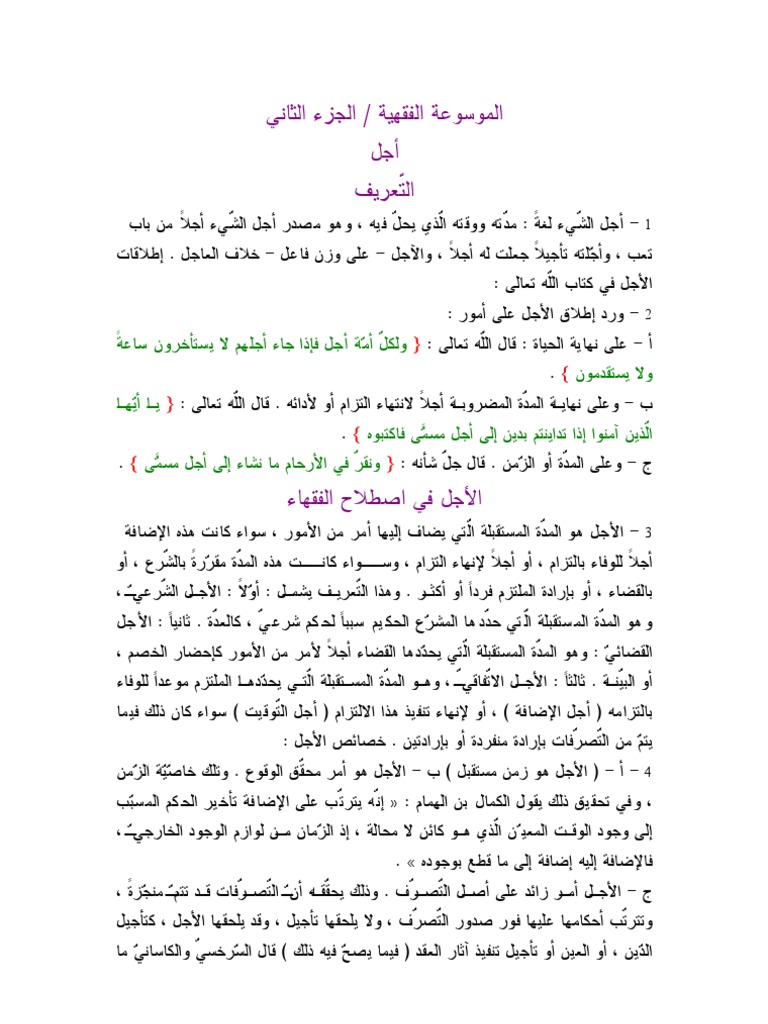 الموسوعة الفقهية / الجزء الثاني
أجل
التّعريف
1 - أجل الشّيء لغةً : مدّته ووقته الّذي يحلّ فيه ، وهو مصدر أجل الشّيء أجلاً من باب
تعب ، وأجّلته تأجيلاً جعلت له أجلاً ، والآجل - على وزن فاعل - خلاف العاجل . إطلاقات
الأجل في كتاب اللّه تعالى :
2 - ورد إطلاق الأجل على أمور :
أ - على نهاية الحياة : قال اللّه تعالى : { ولكلّ أمّة أجل فإذا جاء أجلهم لا يستأخرون ساعةً
ولا يستقدمون } .
ب - وعلى نهاية المدّة المضروبة أجلاً لانتهاء التزام أو لأدائه . قال اللّه تعالى : { يا أيّها
الّذين آمنوا إذا تداينتم بدين إلى أجل مسمًّى فاكتبوه } .
ج - وعلى المدّة أو الزّمن . قال جلّ شأنه : { ونقرّ في الأرحام ما نشاء إلى أجل مسمًّى } .
الأجل في اصطلاح الفقهاء
3 - الأجل هو المدّة المستقبلة الّتي يضاف إليها أمر من الأمور ، سواء كانت هذه الإضافة
أجلاً للوفاء بالتزام ، أو أجلاً لإنهاء التزام ، وسواء كانت هذه المدّة مقرّرةً بالشّرع ، أو
بالقضاء ، أو بإرادة الملتزم فرداً أو أكثر . وهذا التّعريف يشمل : أوّلاً : الأجل الشّرعيّ ،
وهو المدّة المستقبلة الّتي حدّدها المشرّع الحكيم سبباً لحكم شرعيّ ، كالعدّة . ثانياً : الأجل
القضائيّ : وهو المدّة المستقبلة الّتي يحدّدها القضاء أجلاً لأمر من الأمور كإحضار الخصم ،
أو البيّنة . ثالثاً : الأجل الاتّفاقيّ ، وهو المدّة المستقبلة الّتي يحدّدها الملتزم موعداً للوفاء
بالتزامه ( أجل الإضافة ) ، أو لإنهاء تنفيذ هذا الالتزام ( أجل التّوقيت ) سواء كان ذلك فيما
يتمّ من التّصرّفات بإرادة منفردة أو بإرادتين . خصائص الأجل :
4 - أ - ( الأجل هو زمن مستقبل ) ب - الأجل هو أمر محقّق الوقوع . وتلك خاصّيّة الزّمن
، وفي تحقيق ذلك يقول الكمال بن الهمام : « إنّه يترتّب على الإضافة تأخير الحكم المسبّب
إلى وجود الوقت المعيّن الّذي هو كائن لا محالة ، إذ الزّمان من لوازم الوجود الخارجيّ ،
فالإضافة إليه إضافة إلى ما قطع بوجوده » .
ج - الأجل أمر زائد على أصل التّصرّف . وذلك يحقّقه أنّ التّصرّفات قد تتمّ منجّزةً ،
وتترتّب أحكامها عليها فور صدور التّصرّف ، ولا يلحقها تأجيل ، وقد يلحقها الأجل ، كتأجيل
الدّين ، أو العين أو تأجيل تنفيذ آثار العقد ( فيما يصحّ فيه ذلك ) قال السّرخسيّ والكاسانيّ ما